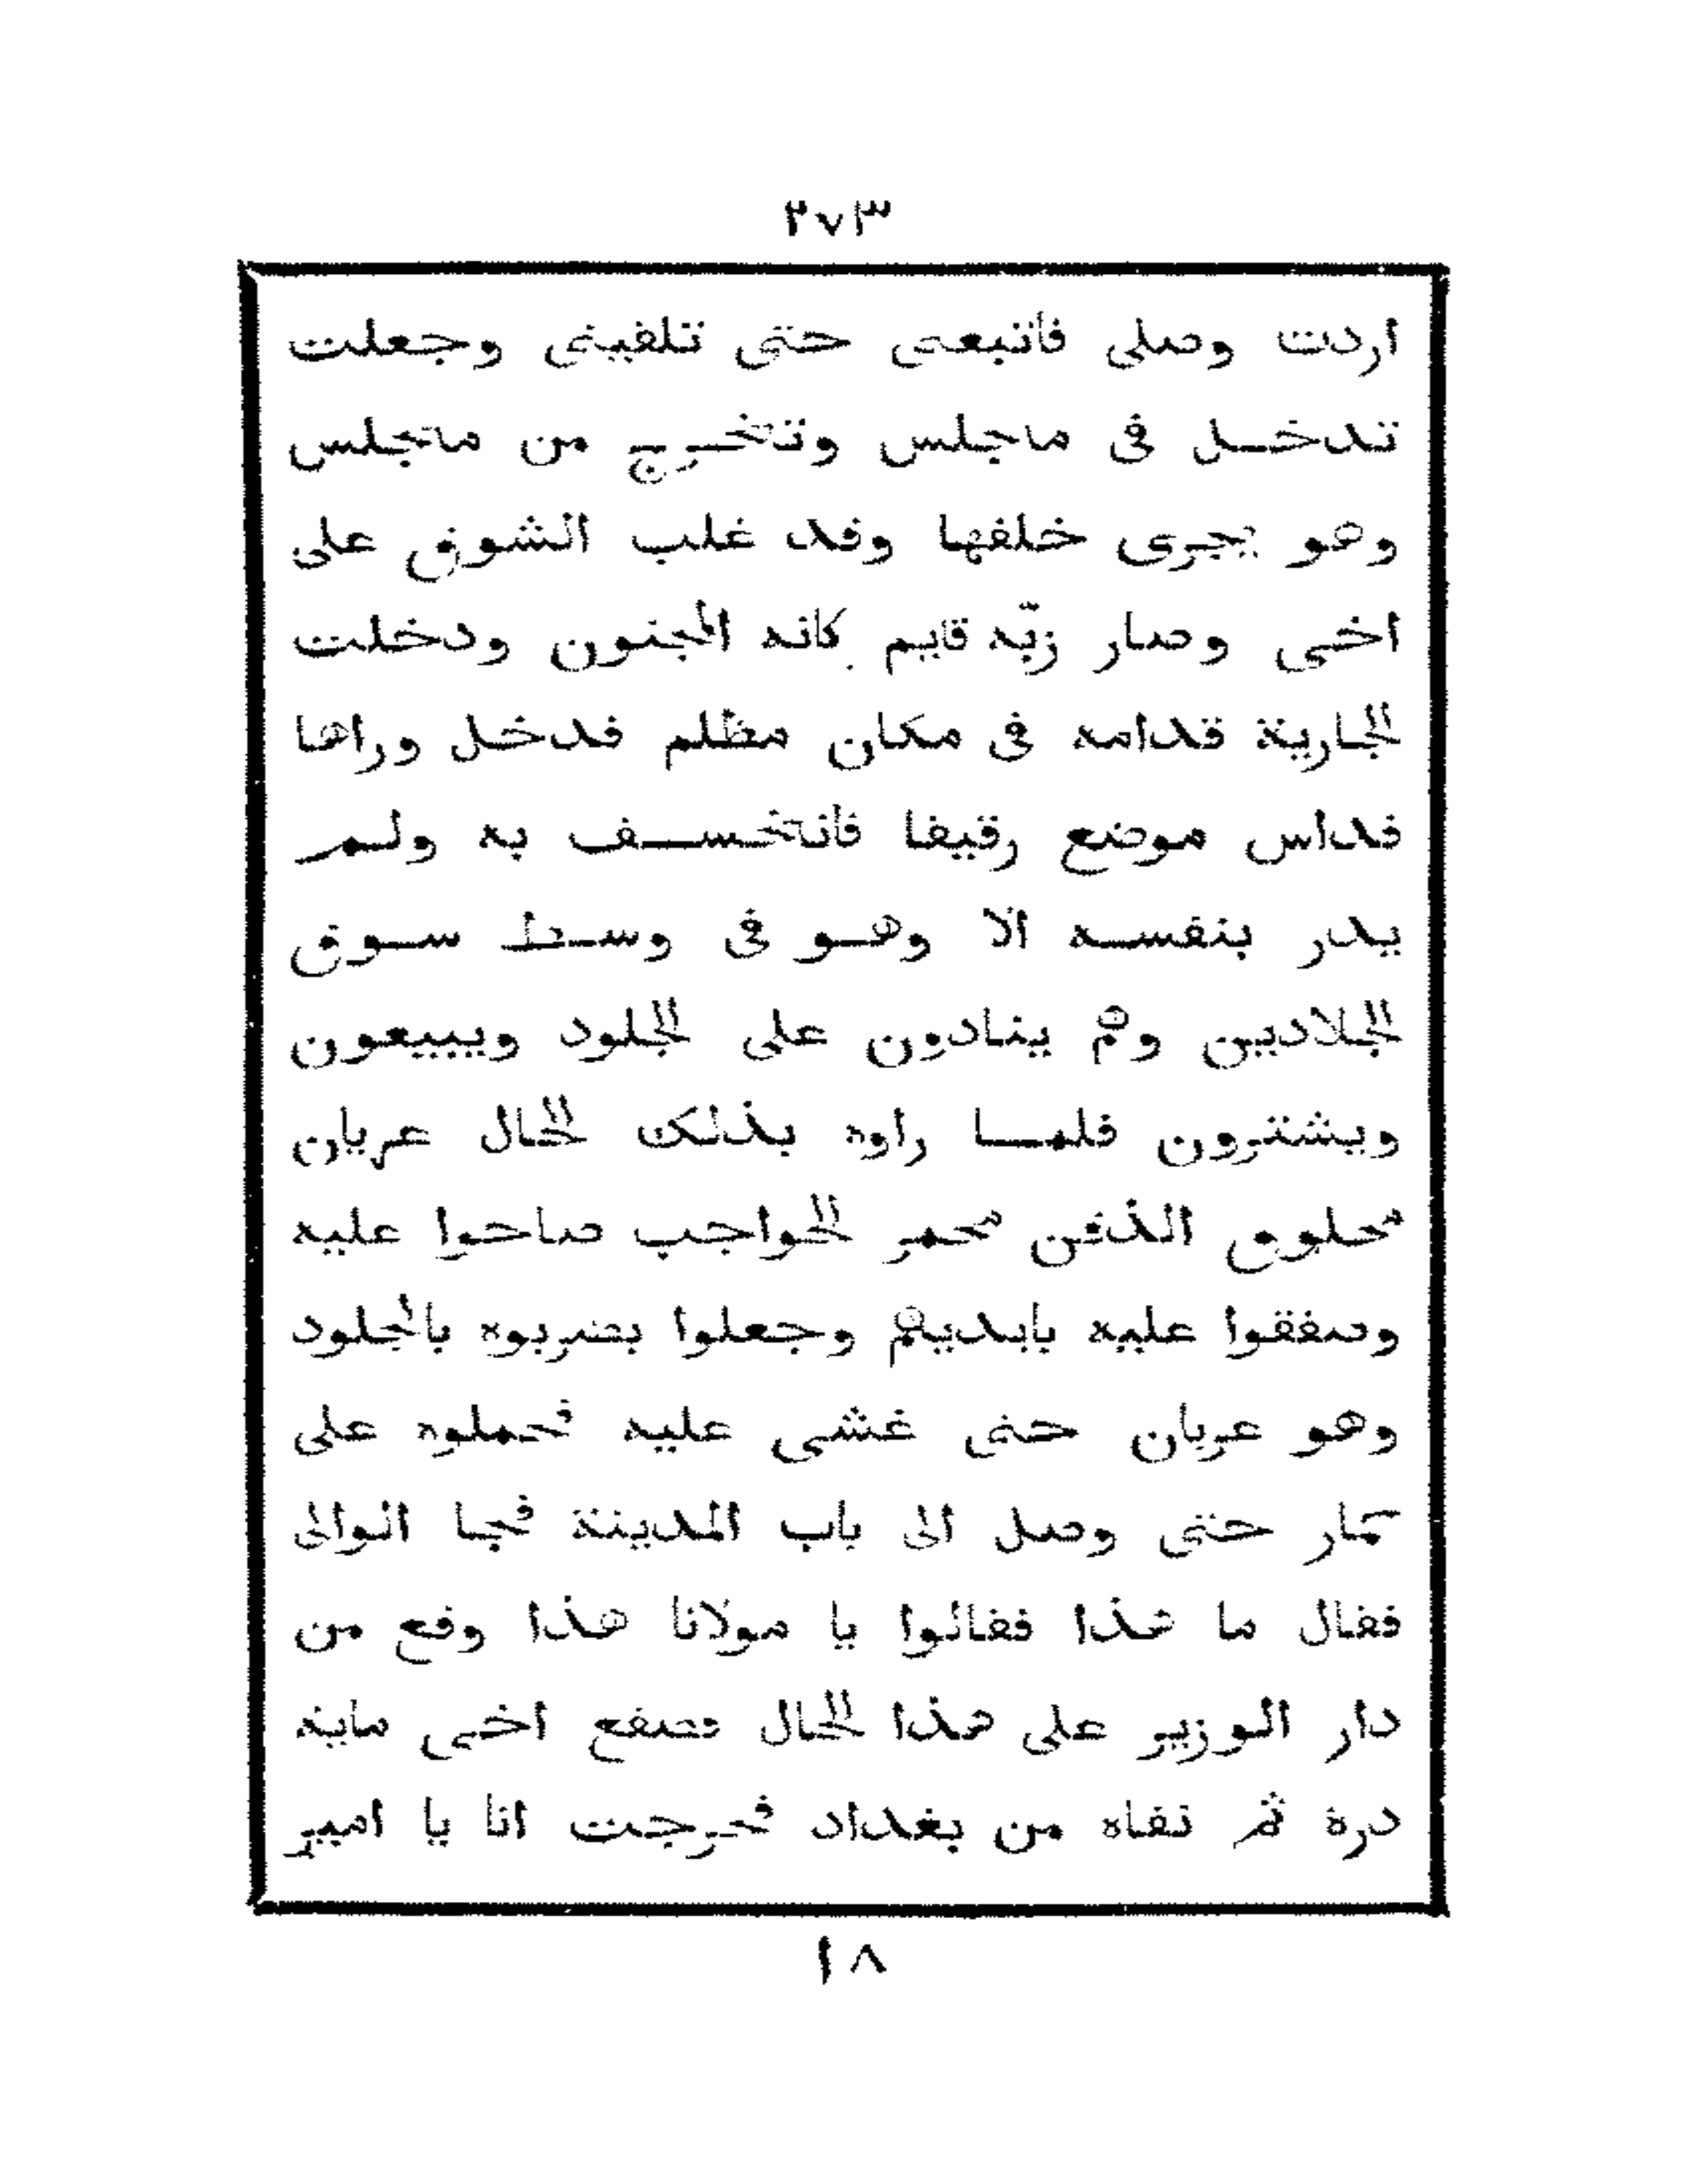 ٢٧٣
اردت وصلى فاتبعنى حتى تلقينى وجعلت
تدخل فى مجلس وتخرج من مجلس
وهو يجرى خلفها وقد غلب الشوق على
اخى وصار زبّه قايم كانه المجنون ودخلت
الجارية قدامه فى مكان مظلم فدخل وراها
فداس موضع رقيقا فانخسف به ولم
يدر بنفسه الا وهو فى وسط سوق
الجلاديين وهم ينادون على الجلود ويبيعون
ويشترون فلما راوه بذلك الحال عريان
محلوق الذقن محمر الحواجب صاحوا عليه
وصفقوا عليه بايديهم وجعلوا يضربوه بالجلود
وهو عريان حتى غشى عليه فحملوه على
حمار حتى وصل الى باب المدينة فجا الوالى
فقال ما هذا فقالوا يا مولانا هذا وقع من
دار الوزير على هذا الحال فصفع اخى ماية
درة ثم نفاه من بغداد فخرجت انا يا امير
١٨